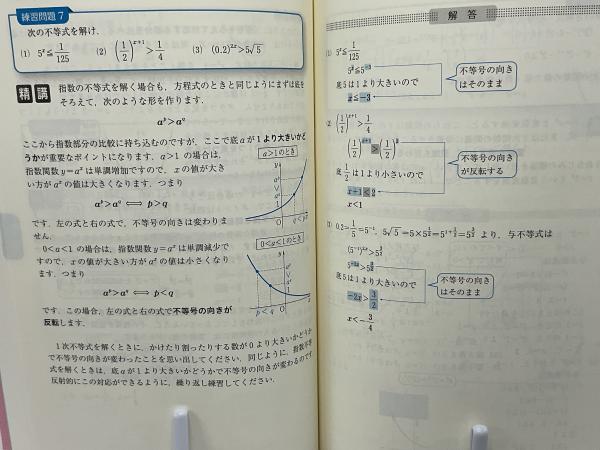 練習問題 7
次の不等式を解け.
(1) 5ˣ≦1/125 (2) (1/2)ˣ⁺¹>1/4 (3) (0.2)²ˣ>5√5
精講 指数の不等式を解く場合も、方程式のときと同じようにまずは底を
そろえて、次のような形を作ります.
aᵖ>a^q
ここから指数部分の比較に持ち込むのですが、ここで底 a が1より大きいかど
うかが重要なポイントになります. a>1 の場合は、
指数関数 y=aˣ は単調増加ですので、x の値が大き
い方が aˣ の値は大きくなります. つまり
aᵖ>a^q ⟺ p>q
です. 左の式と右の式で、不等号の向きは変わりま
せん.
0<a<1 の場合は、指数関数 y=aˣ は単調減少で
すので、x の値が大きい方が aˣ の値は小さくなり
ます. つまり
aᵖ>a^q ⟺ p<q
です. この場合、左の式と右の式で不等号の向きが
反転します.
a>1のとき
0<a<1のとき
p<q
1次不等式を解くときに、かけたり割ったりする数が0より大きいかどうか
で不等号の向きが変わったことを思い出してください. 同じように、指数不等
式を解くときは、底 a が1より大きいかどうかで不等号の向きが変わるのです.
反射的にこの対応ができるように、繰り返し練習してください.
解答
(1) 5ˣ≦1/125
5ˣ≦5⁻³
底5は1より大きいので
x≦−3
不等号の向き
はそのまま
(2) (1/2)ˣ⁺¹>1/4
(1/2)ˣ⁺¹>(1/2)²
底1/2は1より小さいので
x+1<2
x<1
不等号の向き
が反転する
(3) 0.2=1/5=5⁻¹, 5√5=5×5^(1/2)=5^(1+1/2)=5^(3/2) より、与不等式は
(5⁻¹)²ˣ>5^(3/2)
5⁻²ˣ>5^(3/2)
底5は1より大きいので
−2x>3/2
x<−3/4
不等号の向き
はそのまま